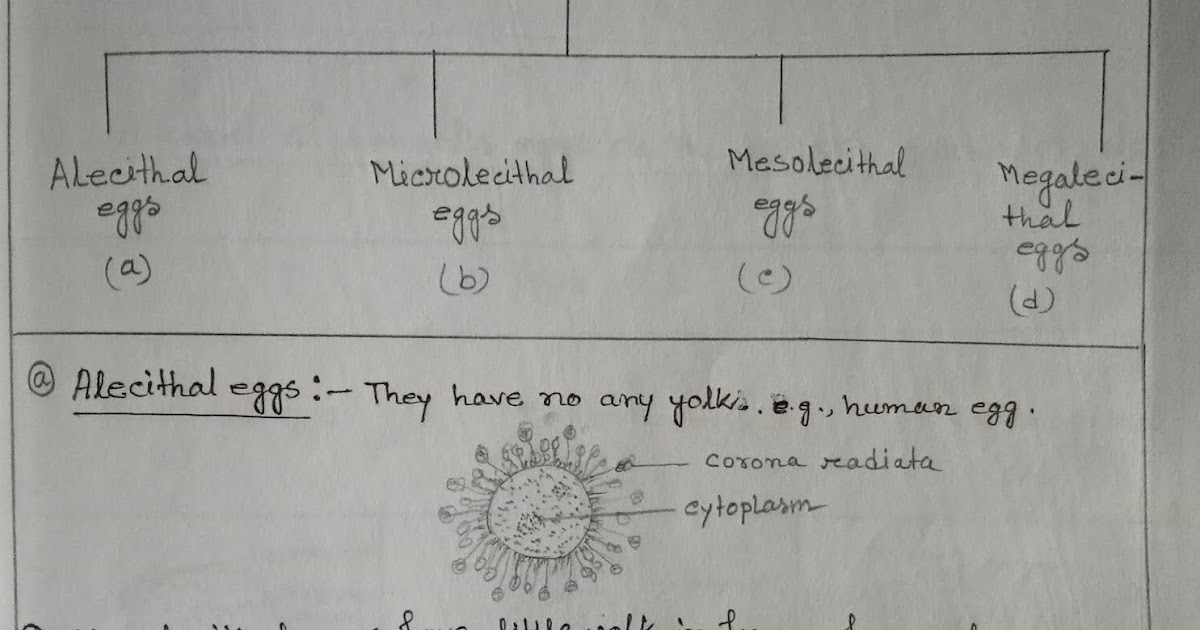 Alecithal eggs (a)
Microlecithal eggs (b)
Mesolecithal eggs (c)
Megaleci-
thal
eggs
(d)
(a) Alecithal eggs :- They have no any yolk. e.g., human egg.
corona readiata
cytoplasm